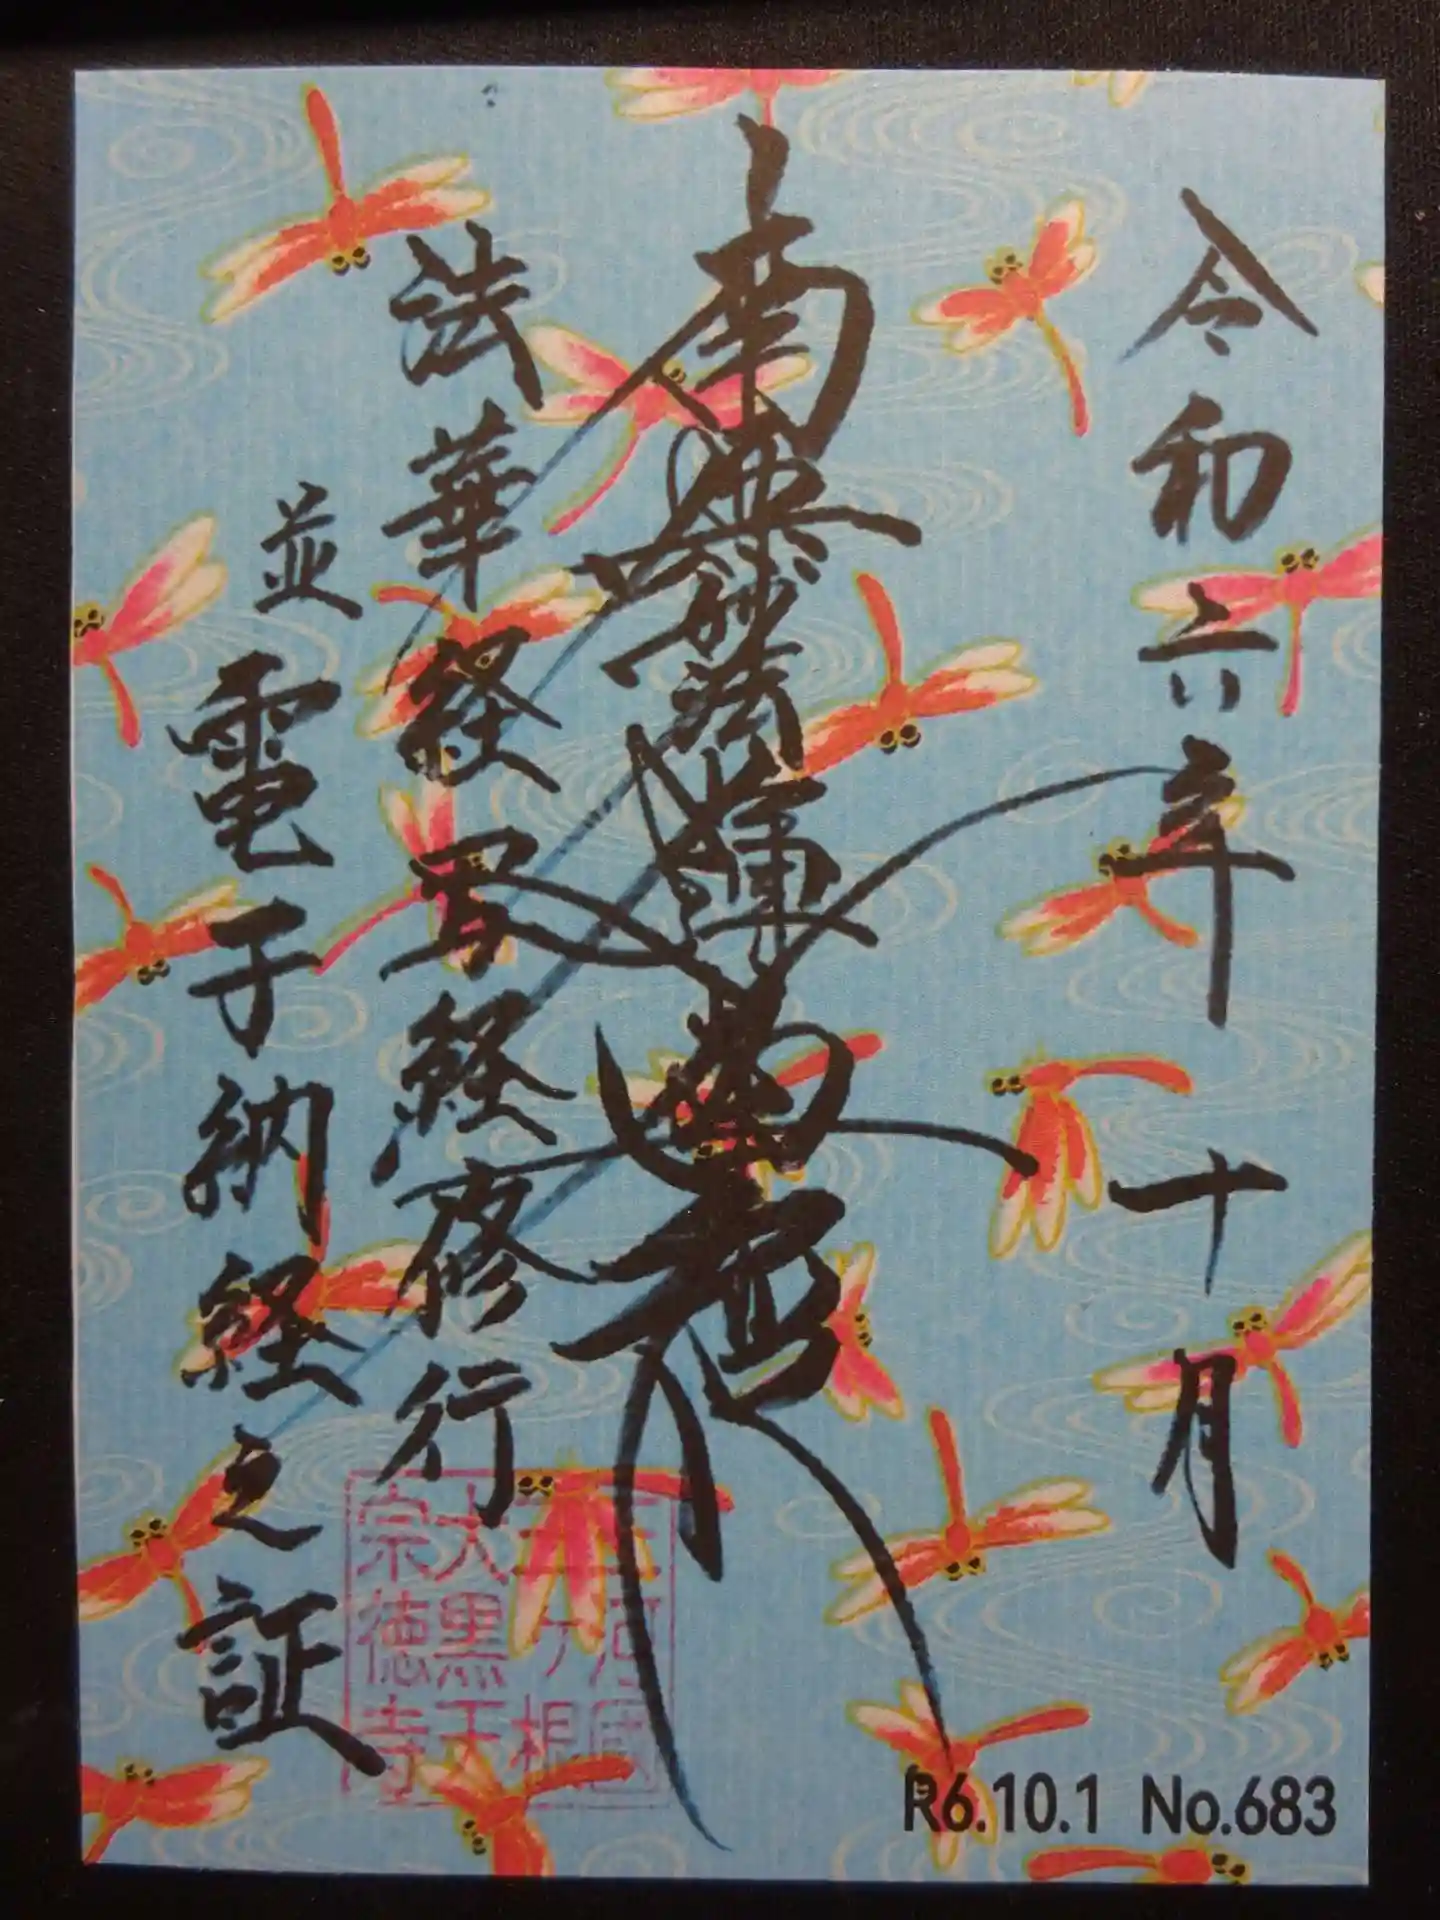 令和六年十月
南無妙法蓮華経
法華経写経修行
並電子納経之証
三河国
三ヶ根
大黒天
宗徳寺
R6.10.1 No.683